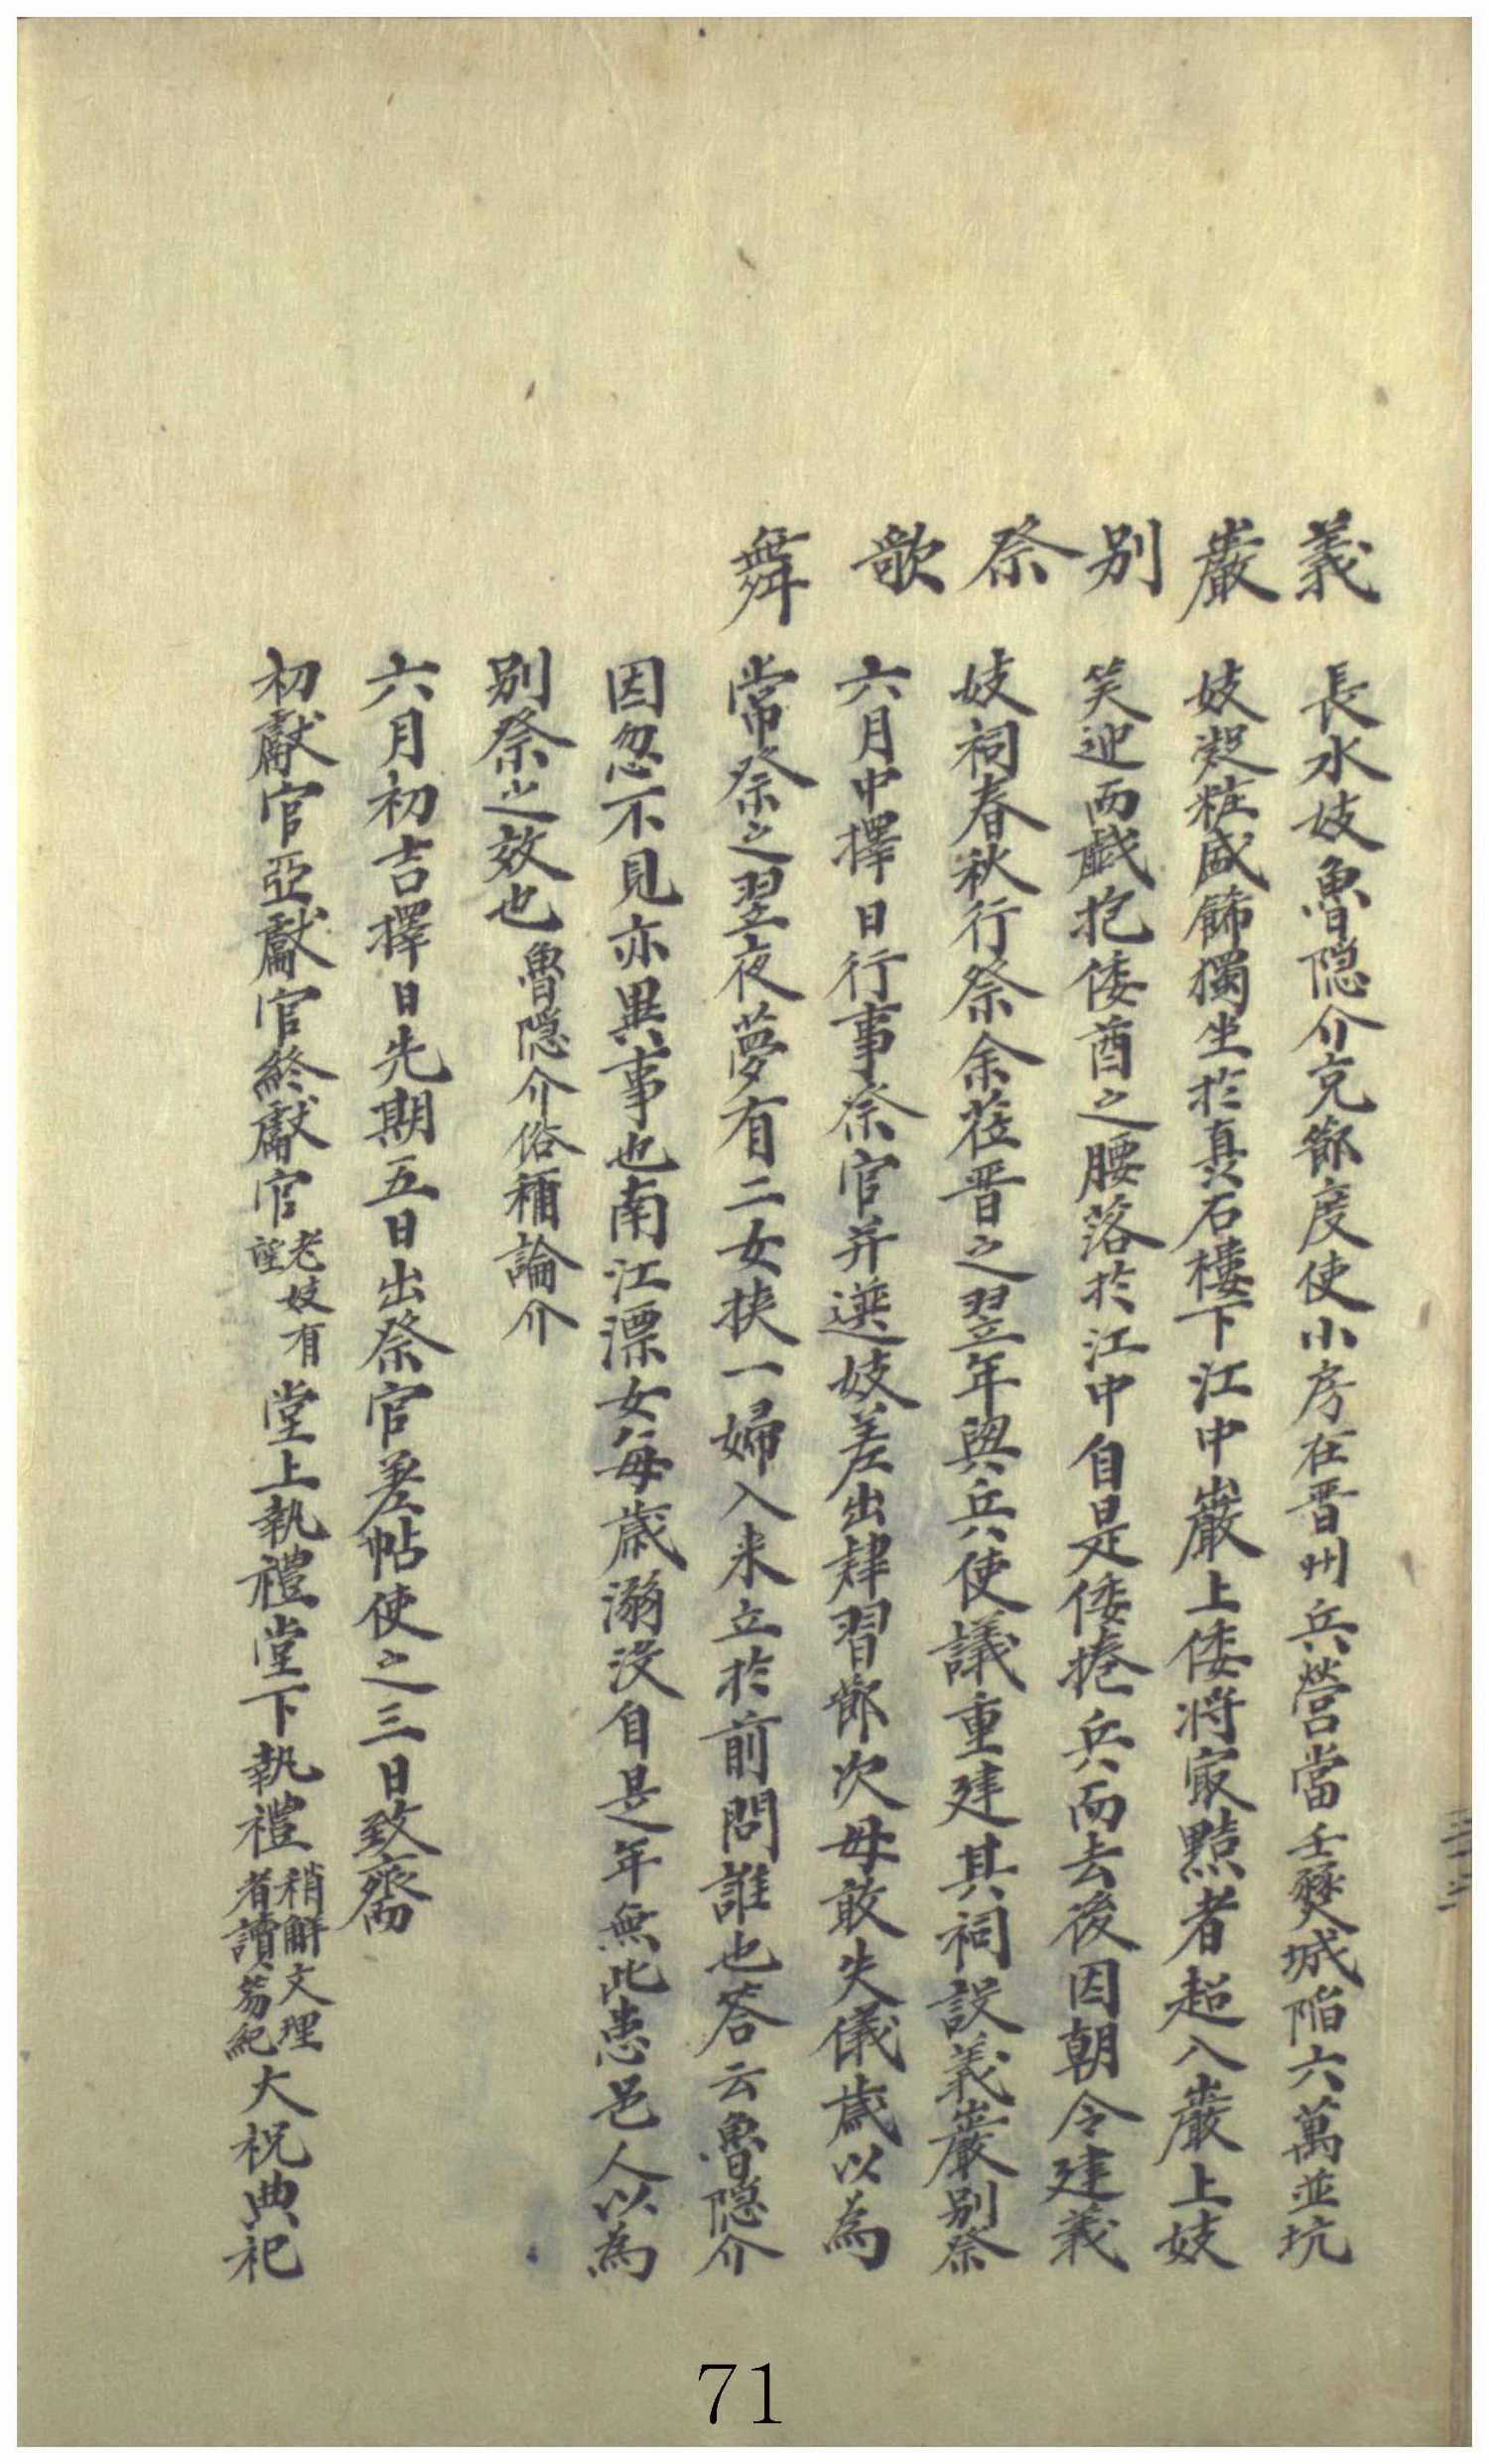 義巖別祭歌舞
長水妓魯隱介充節度使小房在晋州兵營當壬癸城陷六萬並坑
妓凝粧盛飾獨坐於矗石樓下江中巖上倭將最黠者超入巖上妓
笑迎而戱抱倭酋之腰落於江中自是倭捲兵而去後因朝令建義
妓祠春秋行祭余莅晋之翌年與兵使議重建其祠設義巖別祭
六月中擇日行事祭官并選妓差出肄習節次毋敢失儀歲以爲
常祭之翌夜夢有二女挾一婦入来立於前問誰也答云魯隱介
因忽不見亦異事也南江漂女每歲溺沒自是年無此患邑人以爲
別祭之效也 魯隱介俗稱論介
六月初吉擇日先期五日出祭官差帖使之三日致齋
初獻官亞獻官終獻官 老妓有望 堂上執禮堂下執禮 稍解文理者讀笏紀 大祝典祀
71